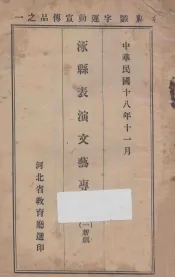 識字運動宣傳品之一
中華民國十八年十一月
涿縣表演文藝專
(一新劇
河北省教育廳選印